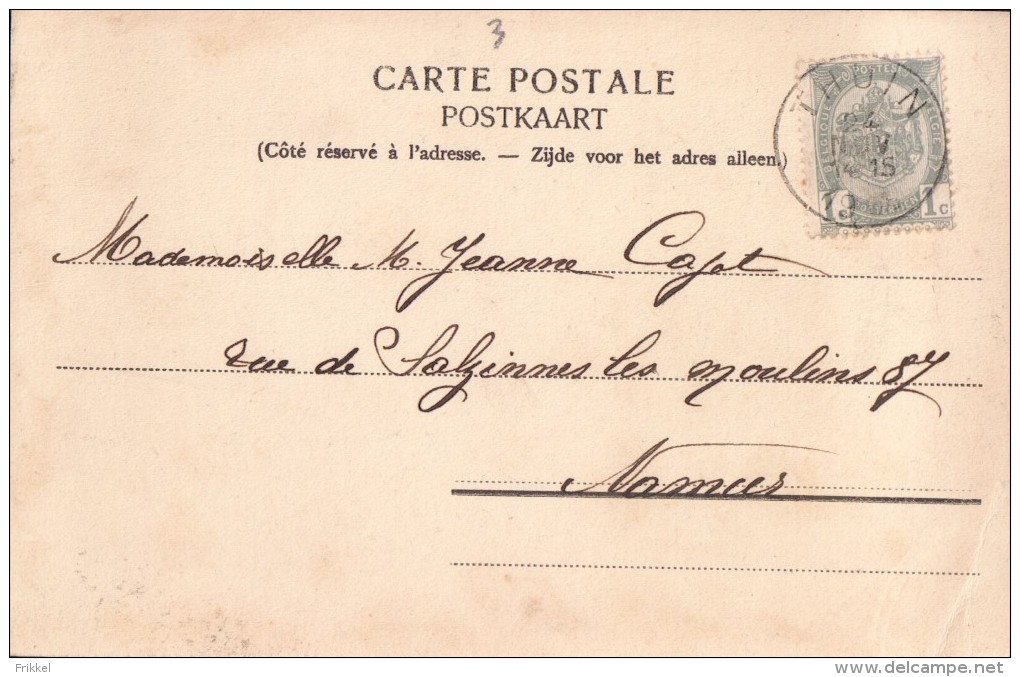 3
CARTE POSTALE
POSTKAART
(Côté réservé à l'adresse. — Zijde voor het adres alleen.)
POSTES
BELGIQUE BELGIE
1 1c
THUIN
24
NOV
14 15
19
Mademoiselle M. Jeanne
rue de Salzinnes les moulins 87
Namur
Frikkel
www.delcampe.net